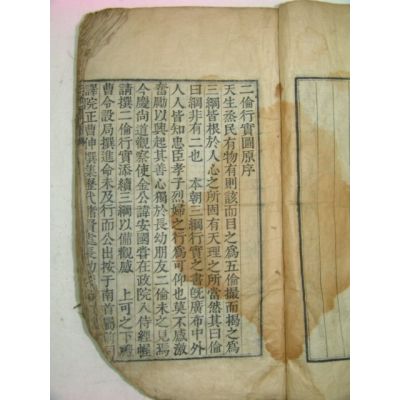 二倫行實圖原序
天生烝民有物有則該而目之爲五倫撮而揭之爲
三綱皆根於人心之所固有天理之所當然其曰倫
曰綱非有二也 本朝三綱行實之書旣廣布中外
人人皆知忠臣孝子烈婦之行爲可仰也莫不感激
奮勵以興起其善心獨於長幼朋友二倫未之見焉
今慶尙道觀察使金公諱安國嘗在政院入侍經幄
請撰二倫行實添續三綱以備觀感 上可之下
曹令設局撰進命未及行而公出按于南首
譯院正曹伸撰集歷代諸賢處長幼